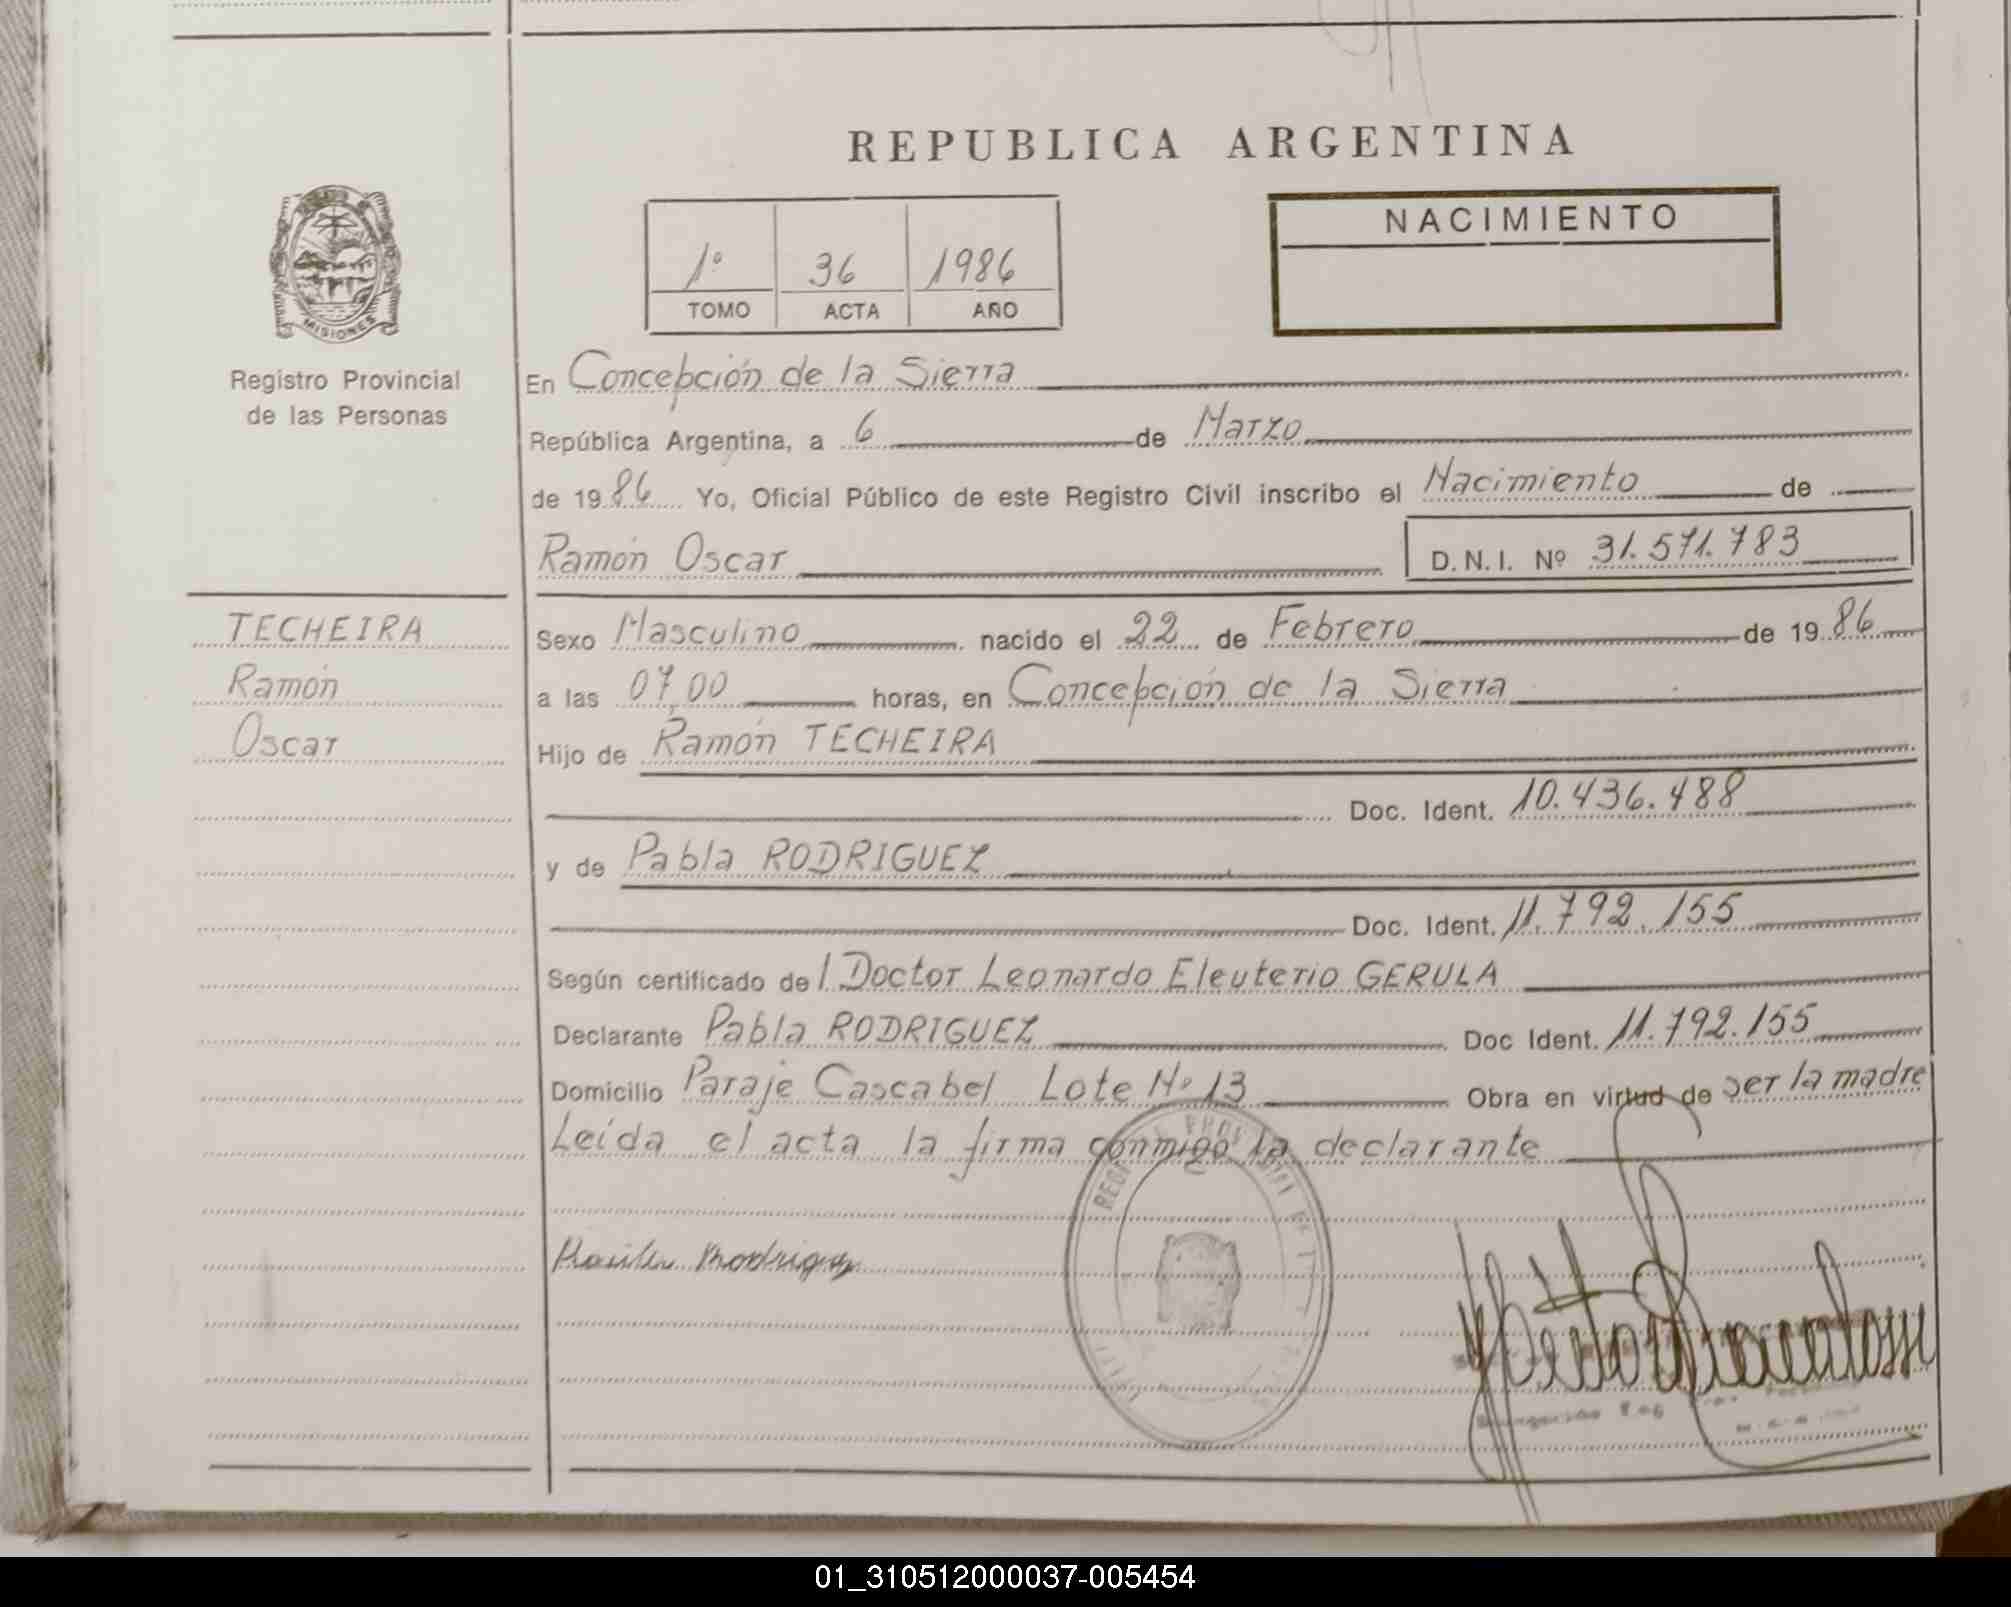 REPUBLICA ARGENTINA
MISIONES
Registro Provincial
de las Personas
1º 36 1986
TOMO ACTA AÑO
NACIMIENTO
En Concepción de la Sierra
República Argentina, a 6 de Marzo
de 1986 Yo, Oficial Público de este Registro Civil inscribo el Nacimiento de
Ramón Oscar D.N.I. Nº 31.571.783
TECHEIRA
Ramón
Oscar
Sexo Masculino nacido el 22 de Febrero de 1986
a las 07,00 horas, en Concepción de la Sierra
Hijo de Ramón TECHEIRA
Doc. Ident. 10.436.488
y de Pabla RODRIGUEZ
Doc. Ident. 11.792.155
Según certificado del Doctor Leonardo Eleuterio GERULA
Declarante Pabla RODRIGUEZ Doc Ident. 11.792.155
Domicilio Paraje Cascabel Lote Nº 13 Obra en virtud de ser la madre
Leída el acta la firma conmigo la declarante
Rodriguez
01_310512000037-005454